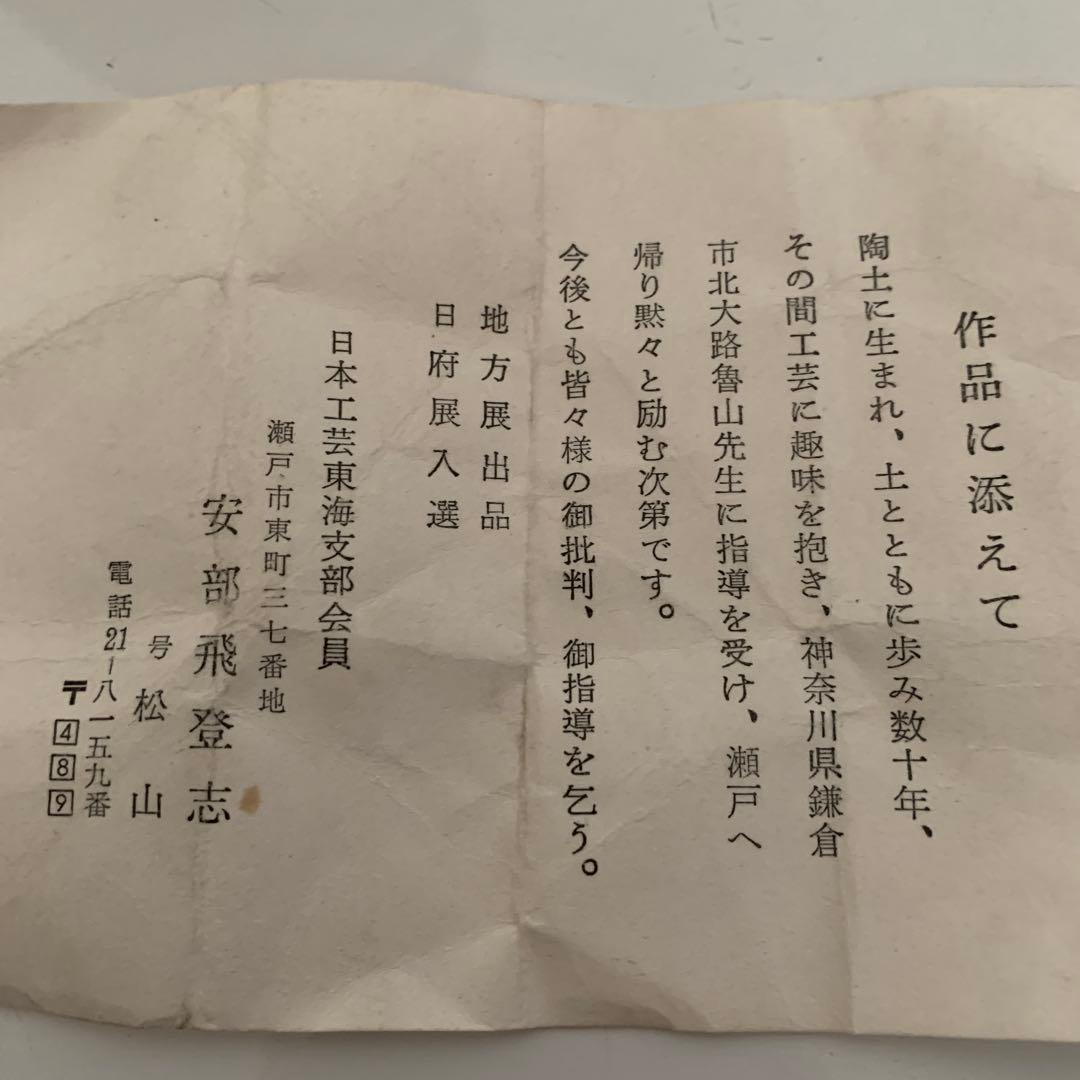 作品に添えて
陶土に生まれ、土とともに歩み数十年、
その間工芸に趣味を抱き、神奈川県鎌倉
市北大路魯山先生に指導を受け、瀬戸へ
帰り黙々と励む次第です。
今後とも皆々様の御批判、御指導を乞う。
地方展出品
日府展入選
日本工芸東海支部会員
瀬戸市東町三七番地
安部飛登志
号松山
電話21-八一五九番
〒489